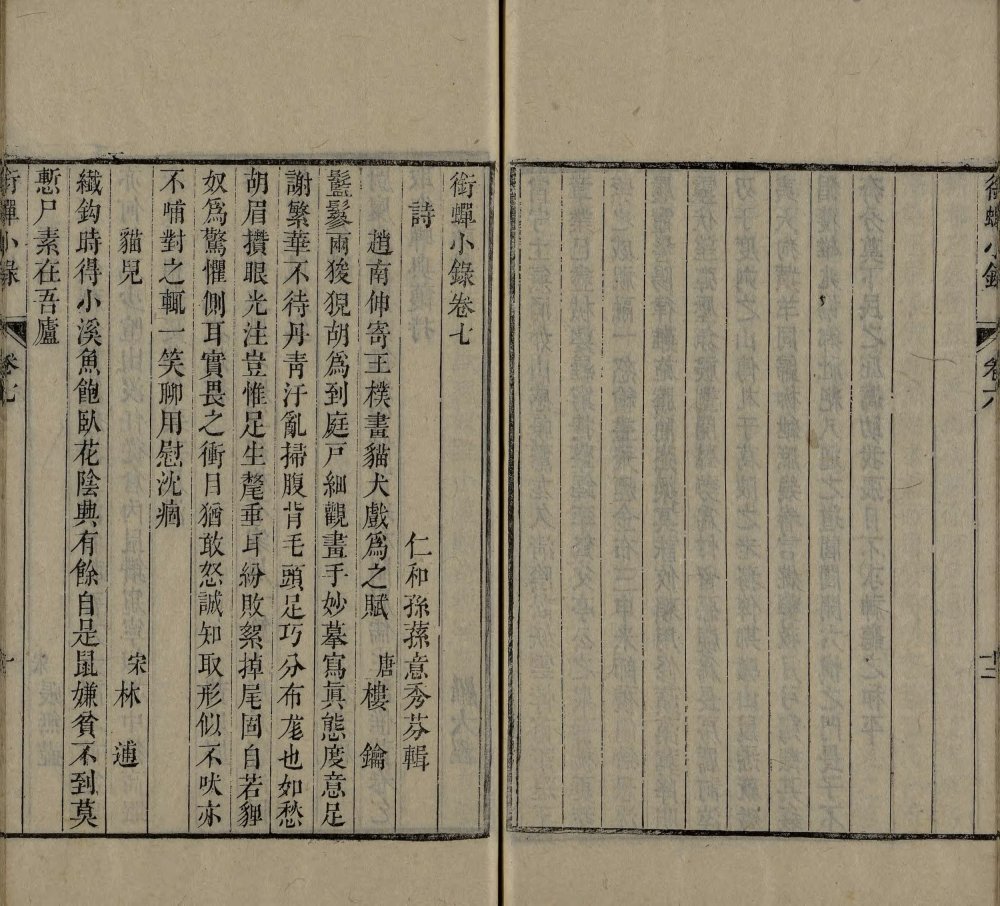 卷六
十二
銜蟬小錄卷七
仁和孫蓀意秀芬輯
詩
趙南仲寄王樸畫貓犬戲為之賦 唐 樓鑰
鬖兩狻猊胡為到庭戶細觀畫手妙摹寫眞態度意足
謝繁華不待丹靑汙亂掃腹背毛頭足巧分布尨也如愁
胡眉攢眼光注豈惟足生氂垂耳紛敗絮掉尾固自若貍
奴為驚懼側耳實畏之衝目猶敢怒誠知取形似不吠亦
不哺對之輒一笑聊用慰沈痼
貓兒 宋 林逋
纖鈎時得小溪魚飽臥花陰興有餘自是鼠嫌貧不到莫
慙尸素在吾廬
銜蟬小錄
卷七
一